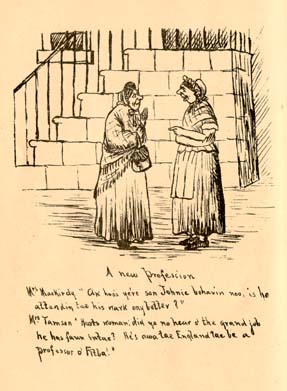 A new profession
Mrs MacKirdy "Ax hoo's yere son Johnie behavin noo, is he
attending tae his wark ony better?"
Mrs Tamson "Hoots woman, did ye no hear o' the grand job
he has fawn intae? He's awa tae England tae be a
professor o' Fitba'."